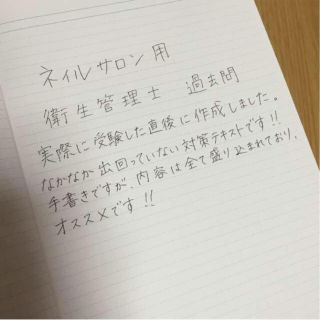 ネイルサロン用
衛生管理士 過去問
実際に受験した直後に作成しました。
なかなか出回っていない対策テキストです!!
手書きですが、内容は全て盛り込まれており、
オススメです!!